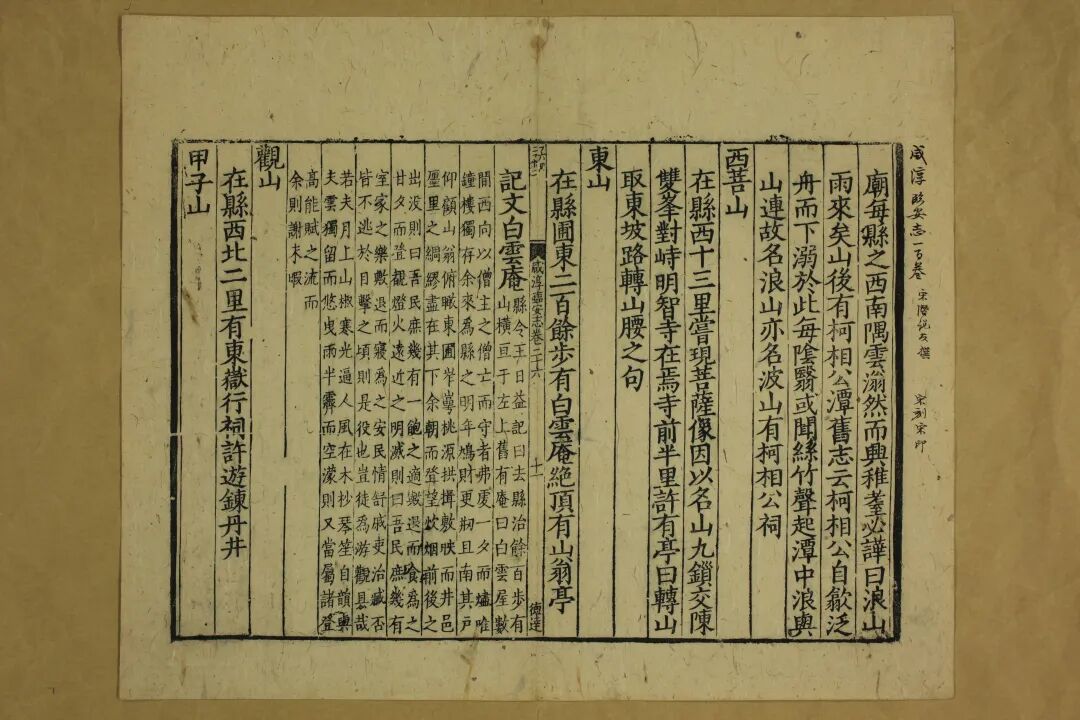 咸淳臨安志一百卷 宋潛說友撰 宋刻宋印
廟每縣之西南隅雲滃然而興稚耋必譁曰浪山
雨來矣山後有柯相公潭舊志云柯相公自歙泛
舟而下溺於此每陰翳或聞絲竹聲起潭中浪與
山連故名浪山亦名波山有柯相公祠
西菩山
在縣西十三里嘗現菩薩像因以名山九鎖交陳
雙峯對峙明智寺在焉寺前半里許有亭曰轉山
取東坡路轉山腰之句
東山
在縣圃東二百餘步有白雲庵絶頂有山翁亭
咸淳臨安志卷二十六 十一 德達
記文白雲庵縣令王日益記曰去縣治餘百步有
山橫亘于左上舊有庵曰白雲屋數
間西向以僧主之僧亡而守者弗虔一夕而燼唯
鐘樓獨存余來為縣之明年鳩財更刱且南其戶
仰顧山翁俯瞰東圃岝崿桃源拱揖敷映而井邑
墨里之綢繆盡在其下余朝而登望炊烟前後之
出沒則曰吾民庶幾有一飽之適歟退而飡為之
甘夕而登觀燈火遠近之明滅則曰吾民庶幾有
室家之樂歟退而寢為之安民情舒戚吏治臧否
皆不逃於目擊之頃則是役也豈徒為游觀具哉
若夫月上山椒寒光逼人風在木杪琴筌自韻與
夫雲獨留而悠曳雨半霽而空濛則又當屬諸登
高能賦之流而
余則謝未暇
觀山
在縣西北二里有東嶽行祠許遊鍊丹井
甲子山